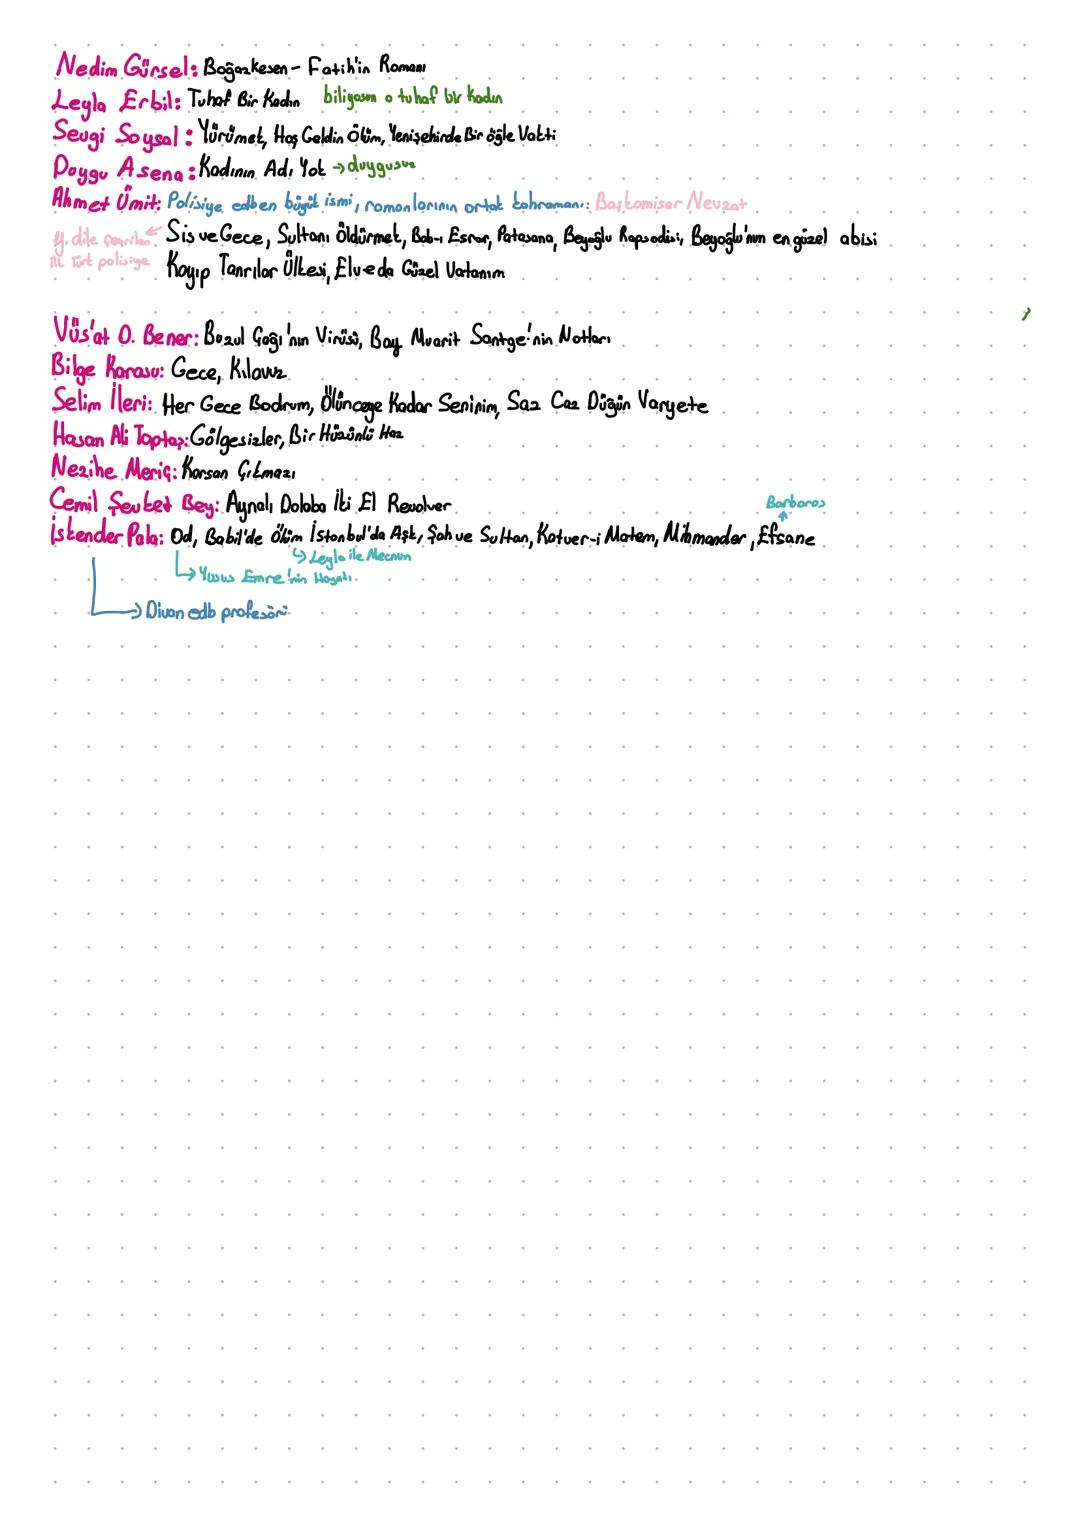 Nedim Gürsel: Boğazkesen - Fatih'in Romanı
Leyla Erbil: Tuhaf Bir Kadın biliyosun o tuhaf bir kadın
Sevgi Soysal: Yürümek, Hoş Geldin Ölüm, Yenişehirde Bir öğle Vakti
Duygu Asena: Kadının Adı Yok → duygusuz
Ahmet Ümit: Polisiye edb en büyük ismi, romanlarının ortak kahramanı: Başkomiser Nevzat
y. dile çevrilen ← Sis ve Gece, Sultanı Öldürmek, Bab-ı Esrar, Patasana, Beyoğlu Rapsodisi, Beyoğlu'nun en güzel abisi
ilk Türk polisiye Kayıp Tanrılar Ülkesi, Elveda Güzel Vatanım
Vüs'at O. Bener: Buzul Çağı'nın Virüsü, Bay Muarit Santge'nin Notları
Bilge Karasu: Gece, Kılavuz
Selim İleri: Her Gece Bodrum, Ölünceye Kadar Seninim, Saz Caz Düğün Varyete
Hasan Ali Toptaş: Gölgesizler, Bir Hüzünlü Haz
Nezihe Meriç: Korsan Çıkmazı
Cemil Şevket Bey: Aynalı Dolaba İki El Revolver
Barbaros
İskender Pala: Od, Babil'de Ölüm İstanbul'da Aşk, Şah ve Sultan, Katver-i Matem, Mihmandar, Efsane
↳ Leyla ile Mecnun
↳ Yunus Emre'nin Hayatı
→ Divan edb profesörü